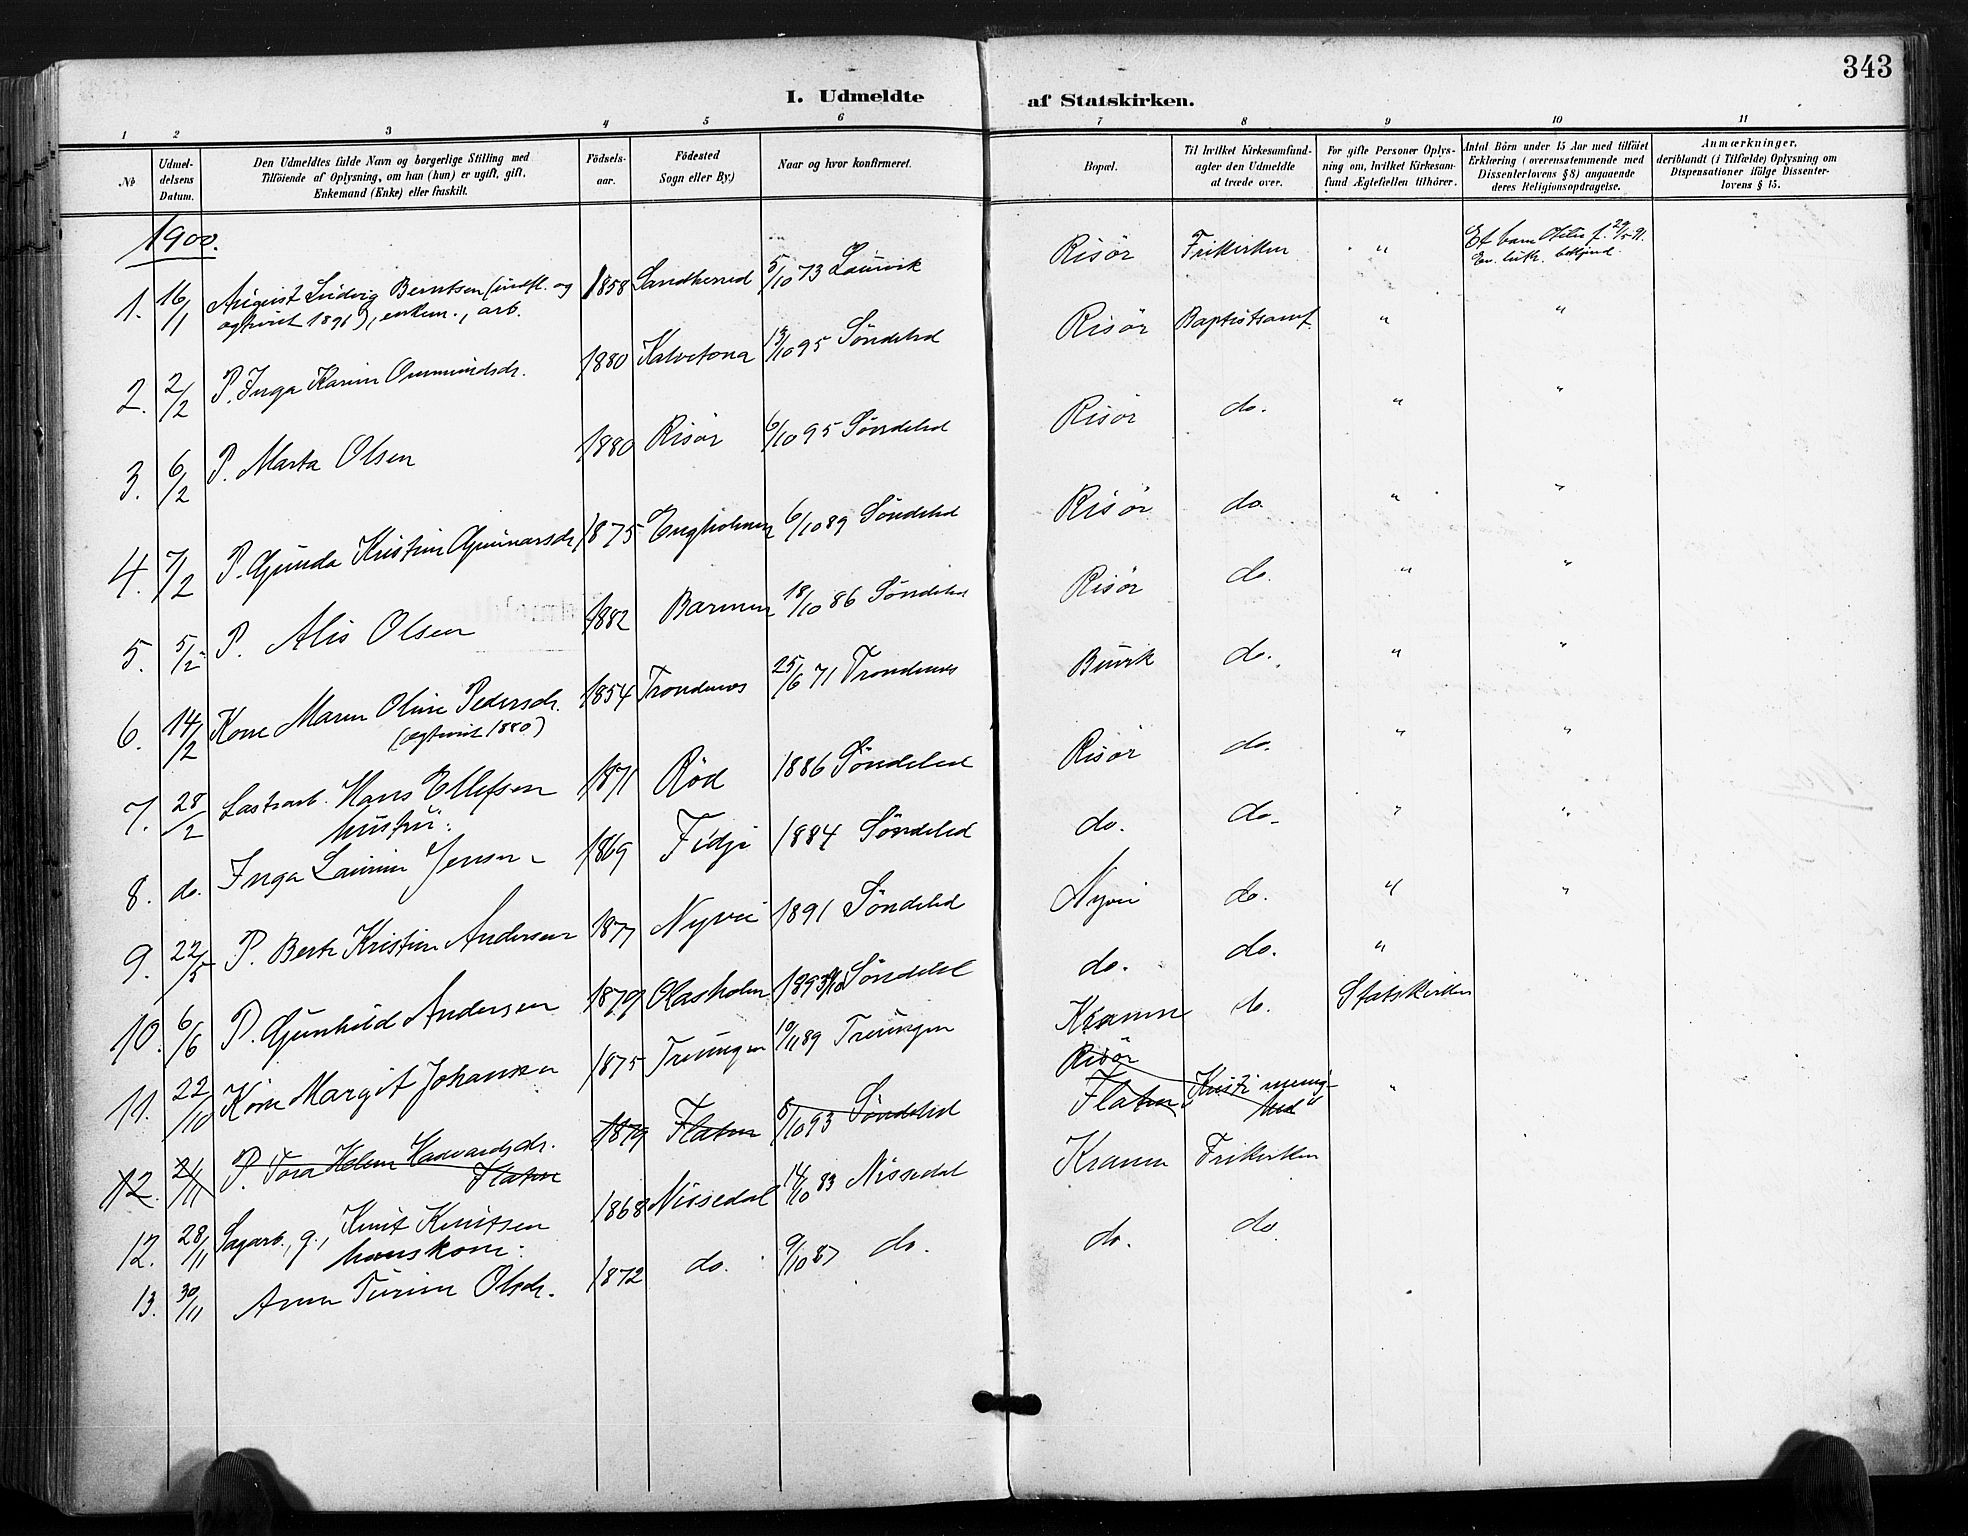 343
I. Udmeldte af Statskirken.
1 2 3 4 5 6 7 8 9 10 11
No
Udmeldelsens Datum.
Den Udmeldtes fulde Navn og borgerlige Stilling med
Tilföiende af Oplysning, om han (hun) er ugift, gift,
Enkemand (Enke) eller fraskilt.
Födselsaar.
Födested
Sogn eller By.)
Naar og hvor konfirmeret.
Bopæl.
Til hvilket Kirkesamfund-
agter den Udmeldte
at træde over.
For gifte Personer Oplys-
ning om, hvilket Kirkesam-
fund Ægtefællen tilhörer.
Antal Börn under 15 Aar med tilföiet
Erklæring (overensstemmende med
Dissenterlovens § 8) angaaende
deres Religionsopdragelse.
Anmærkninger,
deriblandt (i Tilfælde) Oplysning om
Dispensationer ifölge Dissenter-
lovens § 15.
1900.
1. 16/1 August Ludvig Berntsen (indfl. og 1858 Sandherred 5/10 73 Laurvik Risör Frikirken " Et barn f. 29/5 91.
1891), enkem., arb.
2. 2/2 P. Inga Karine 1880 13/10 95 Söndeled Risör Baptistsamf. " "
3. 6/2 P. Marta Olsen 1880 Risör 6/10 95 Söndeled Risör do. " "
4. 7/2 P. Gunda Kristine Gunnarsdr 1875 Engholmen 6/10 89 Söndeled Risör do. " "
5. 5/2 P. Alis Olsen 1882 Barmen 18/10 86 Söndeled Risör do. " "
6. 14/2 Kone Maren Oline Pedersdr. 1854 Trondenes 25/6 71 Trondenes Buvik do. " "
(egteviet 1880)
7. 28/2 Lastearb. Hans Ellefsen 1871 Röd 1886 Söndeled Risör do. " "
hustru:
8. do. Inga Jensen 1869 Fidje 1884 Söndeled do. do. " "
9. 22/5 P. Berte Kristine Andersen 1877 Nyvei 1891 Söndeled Nyvei do. " "
10. 6/6 P. Gunhild Andersen 1879 Olasholm 1893 Söndeled do. do. "
11. 22/10 Kone Margit Johansen 1875 Treungen 19/11 89 Treungen Kranen do. Statskirken
Risör
12. 2/11 P. Tora Helene 1879 Flaten 8/10 93 Söndeled Flaten "Kristi menig- "
Flaten hed"
12. 28/11 Sagarb., g., Knut Knutsen 1868 Nissedal 14/10 83 Nissedal Kranen Frikirken
hans kone:
13. 30/11 Anne Turine Olsdr. 1872 do. 9/10 87 do. do. do.